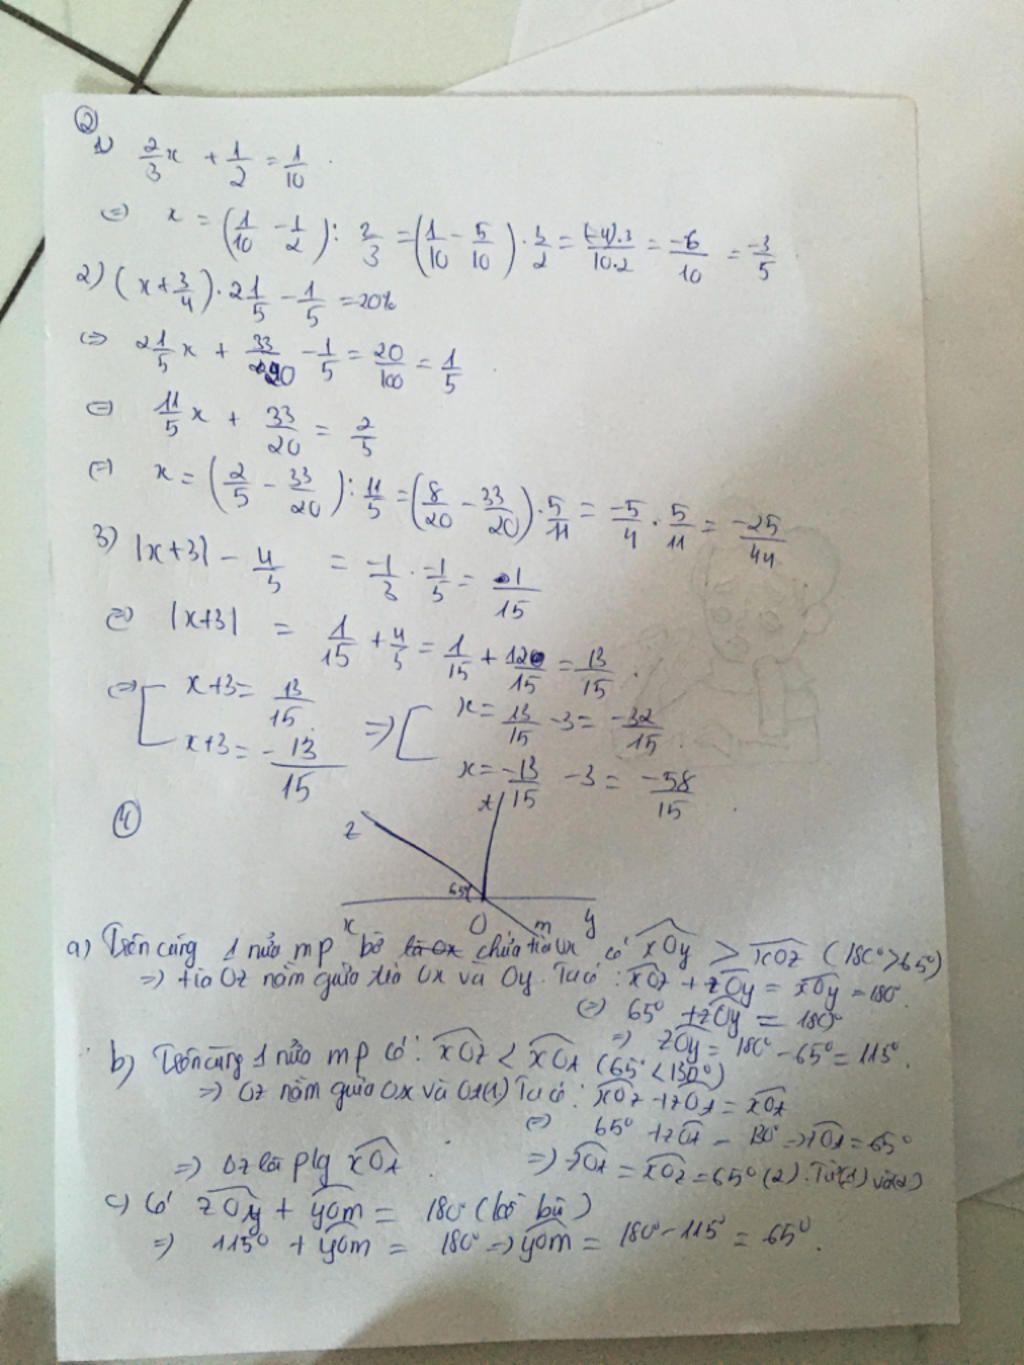 ②
1) 2/3 x + 1/2 = 1/10
⇔ x = (1/10 - 1/2) : 2/3 = (1/10 - 5/10) . 3/2 = (-4).3/10.2 = -6/10 = -3/5
2) (x + 3/4) . 2 1/5 - 1/5 = 20%
⇔ 2 1/5 x + 33/20 - 1/5 = 20/100 = 1/5
⇔ 11/5 x + 33/20 = 2/5
⇔ x = (2/5 - 33/20) : 11/5 = (8/20 - 33/20) . 5/11 = -5/4 . 5/11 = -25/44
3) |x+3| - 4/5 = -1/3 . -1/5 = 1/15
⇔ |x+3| = 1/15 + 4/5 = 1/15 + 12/15 = 13/15
⇔ [ x+3 = 13/15 ⇒ [ x = 13/15 - 3 = -32/15
x+3 = -13/15 x = -13/15 - 3 = -58/15
④
z t
65°
x O m y
a) Trên cùng 1 nửa mp bờ chứa tia Ox có xOy > xOz (180° > 65°)
⇒ tia Oz nằm giữa tia Ox và Oy. Ta có : xOz + zOy = xOy = 180°
⇔ 65° + zOy = 180°
⇒ zOy = 180° - 65° = 115°
b) Trên cùng 1 nửa mp có : xOz < xOt (65° < 130°)
⇒ Oz nằm giữa Ox và Ot (1). Ta có : xOz + zOt = xOt
⇔ 65° + zOt = 130° ⇒ zOt = 65°
⇒ zOt = xOz = 65° (2). Từ (1) và (2)
⇒ Oz là p/g xOt
c) Có zOy + yOm = 180° (kề bù)
⇒ 115° + yOm = 180° ⇒ yOm = 180° - 115° = 65°